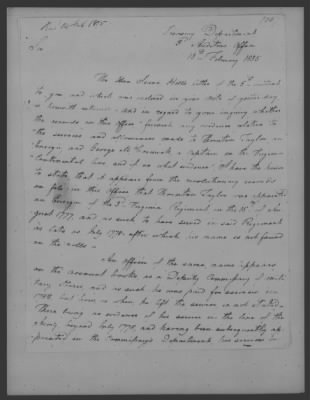 Rec'd 20 Feb 1835
Treasury Department
3d Auditors Office
18th February 1835
Sir
The Hon Isaac Hill's letter of the 5th instant
to you and which was enclosed in your note of yesterday
is herewith returned and in regard to your inquiry whether
the records in this office furnish any evidence relative to
the services and allowances made to Thornton Taylor an
Ensign, and George McCormick a Captain on the Virginia
Continental line, and if so what evidence? I have the honor
to state that it appears from the revolutionary records
on file in this Office that Thornton Taylor was appointed
an Ensign of the 3d Virginia Regiment on the 15th of August
1777, and as such to have served in said Regiment
as late as July 1778. after which his name is not found
on the rolls.
An officer of the same name appears
on the account books as a Deputy Commissary of military
Stores and as such he was paid for services in
1782, but when he left the service is not stated.
There being no evidence of his service in the line of the
Army beyond July 1778, and having been subsequently ap-
pointed in the Commissary's Department his services in